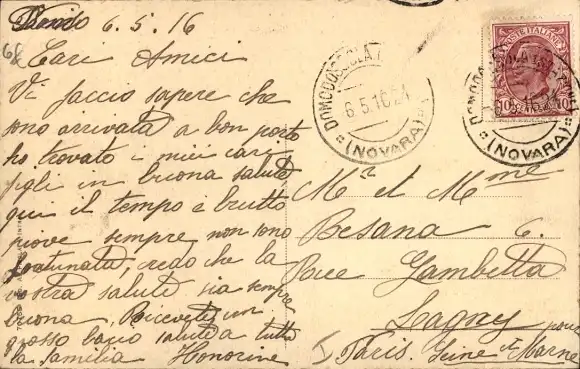 6.5.16
Cari Amici
Vi faccio sapere che
sono arrivata a bon porto
ho trovato i miei cari
figli in buona salute
qui il tempo e brutto
piove sempre non sono
fortunata, credo che la
vostra salute sia sempre
buona, Ricevete un
grosso bacio saluté a tutta
la familia Honorine
DOMODOSSOLA
6.5.16 21
(NOVARA)
POSTE ITALIANE
10
(NOVARA)
Mr et Mme
Besana
6.
Gambetta
Lagny pour
Paris. Seine et Marne